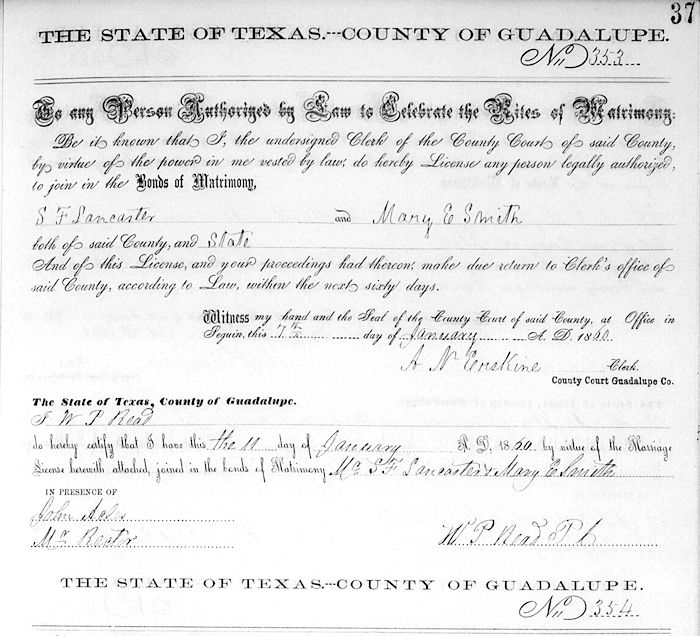 37
THE STATE OF TEXAS.---COUNTY OF GUADALUPE.
No 353
To any Person Authorized by Law to Celebrate the Rites of Matrimony:
Be it known that I, the undersigned Clerk of the County Court of said County,
by virtue of the power in me vested by law, do hereby License any person legally authorized,
to join in the Bonds of Matrimony,
S F Lancaster and Mary E Smith
both of said County, and State
And of this License, and your proceedings had thereon, make due return to Clerk's office of
said County, according to Law, within the next sixty days.
Witness my hand and the Seal of the County Court of said County, at Office in
Seguin, this 7th day of January A. D. 1860.
A N Erskine Clerk.
County Court Guadalupe Co.
The State of Texas, County of Guadalupe.
I W P Read
do hereby certify that I have this the 11 day of January A. D. 1860 by virtue of the Marriage
License herewith attached, joined in the bonds of Matrimony Mr S F Lancaster & Mary E Smith
IN PRESENCE OF
John
Mr Rector W P Read
THE STATE OF TEXAS.---COUNTY OF GUADALUPE.
No 354